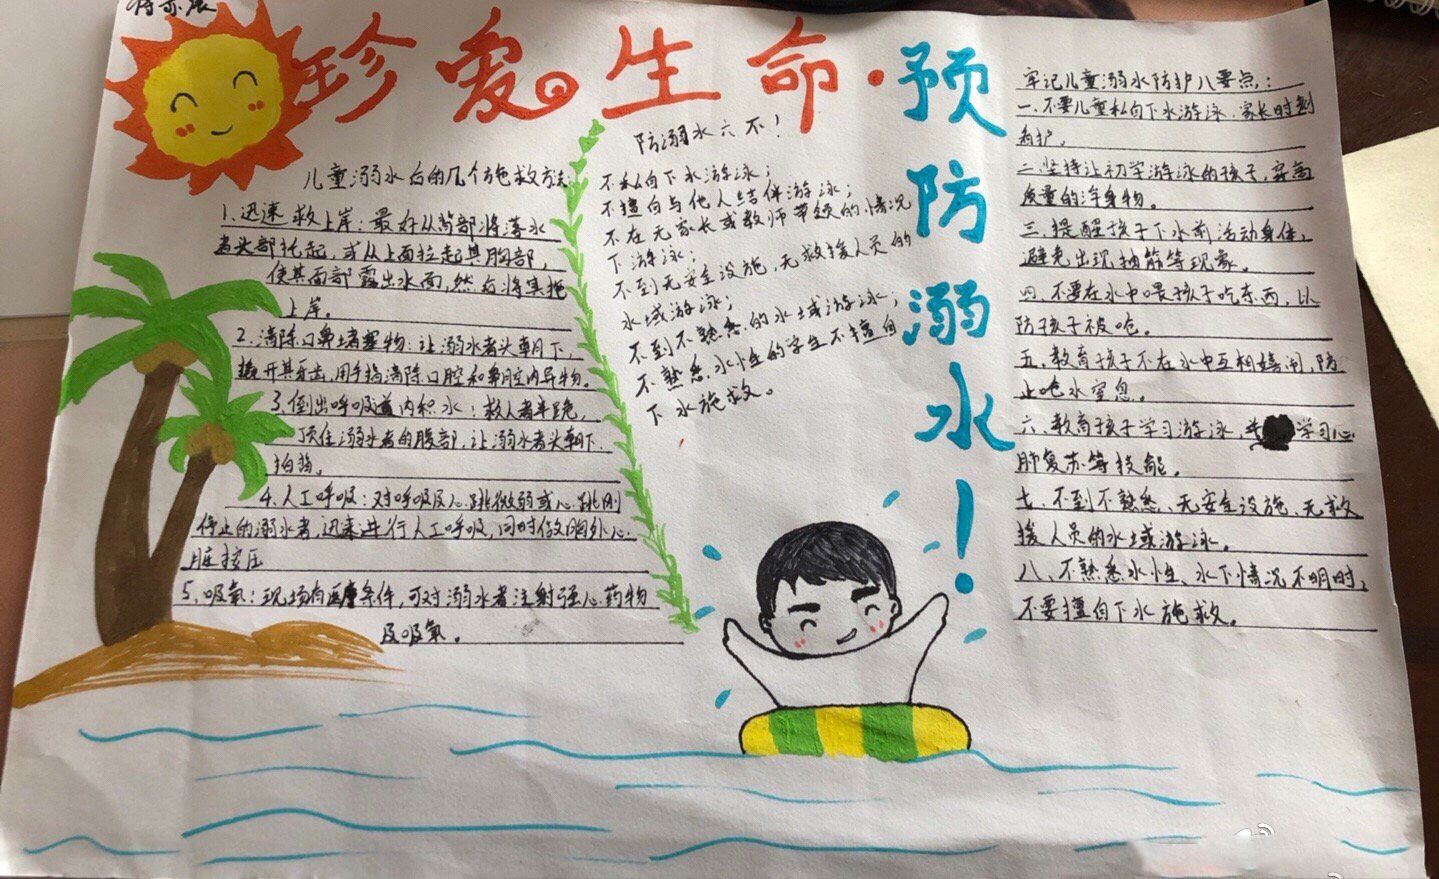 珍爱生命·预防溺水！
儿童溺水后的几个施救方法
1.迅速救上岸：最好从背部将落水
者头部托起，或从上面拉起其胸部，
使其面部露出水面，然后将其拖
上岸。
2.清除口鼻堵塞物：让溺水者头朝下，
撬开其牙齿，用手指清除口腔和鼻腔内异物。
3.倒出呼吸道内积水：救人者半跪，
顶住溺水者的腹部，让溺水者头朝下.
拍背。
4.人工呼吸：对呼吸及心跳微弱或心跳刚
停止的溺水者，迅速进行人工呼吸，同时做胸外心
脏按压
5.吸氧：现场有医疗条件，可对溺水者注射强心药物
及吸氧。
防溺水六不！
不私自下水游泳；
不擅自与他人结伴游泳；
不在无家长或教师带领的情况
下游泳；
不到无安全设施，无救援人员的
水域游泳；
不到不熟悉的水域游泳；
不熟悉水性的学生不擅自
下水施救。
牢记儿童溺水防护八要点：
一.不要儿童私自下水游泳，家长时刻
看护。
二.坚持让初学游泳的孩子，穿高
质量的浮身物。
三.提醒孩子下水前活动身体，
避免出现抽筋等现象。
四.不要在水中喂孩子吃东西，以
防孩子被呛。
五.教育孩子不在水中互相嬉闹，防
止呛水窒息。
六.教育孩子学习游泳，学习心
肺复苏等技能。
七.不到不熟悉、无安全设施、无救
援人员的水域游泳。
八、不熟悉水性、水下情况不明时，
不要擅自下水施救。